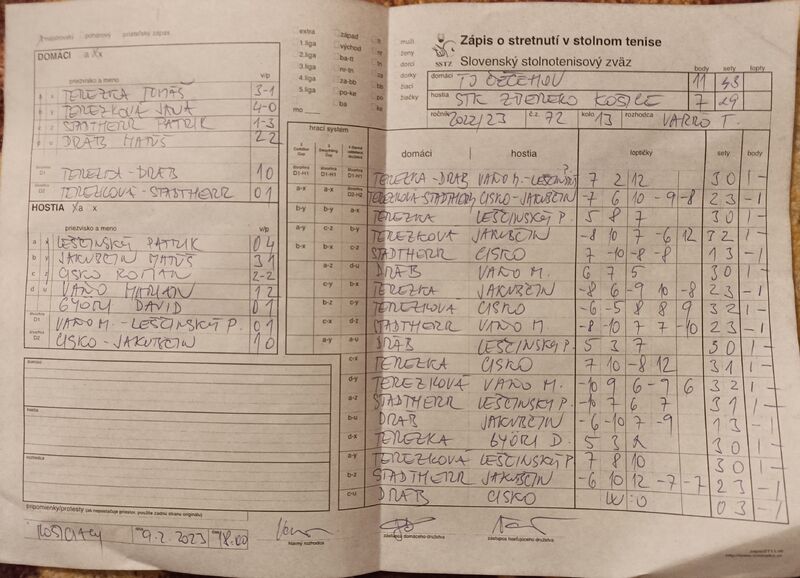 majstrovský pohárový priateľský zápas
DOMÁCI a x
priezvisko a meno v/p
TEREZKA TOMÁŠ 3-1
TEREZKOVÁ JANA 4-0
STADTHERR PATRIK 1-3
DRÁB MATÚŠ 2 2
D1 TEREZKA - DRÁB 1 0
D2 TEREZKOVÁ - STADTHERR 0 1
HOSTIA a x
priezvisko a meno v/p
LEŠČINSKÝ PATRIK 0 4
JAKUBČIN MATÚŠ 3 1
CISKO ROMAN 2-2
VAŇO MARIÁN 1 2
GYÖRI DAVID 0 1
D1 VAŇO M. - LEŠČINSKÝ P. 0 1
D2 CISKO - JAKUBČIN 1 0
domáci
hostia
rozhodca
pripomienky/protesty (ak nepostačuje priestor, použite zadnú stranu originálu)
9.2.2023 18.00
hlavný rozhodca
zástupca domáceho družstva
zástupca hosťujúceho družstva
extra
1.liga
2.liga
3.liga
4.liga
5.liga
mo
západ
východ
ba-tt
nr-tn
za-bb
po-ke
ba
ke
muži
ženy
dorci
dorky
žiaci
žiačky
SSTZ
Zápis o stretnutí v stolnom tenise
Slovenský stolnotenisový zväz
body sety lopty
domáci TJ ČEČEHOV 11 43
hostia STK ZDENEKO KOŠICE 7 29
ročník 2022/23 č.z. 72 kolo 13 rozhodca VARRÓ T.
hrací systém
domáci hostia loptičky sety body
TEREZKA - DRÁB VAŇO M. - LEŠČINSKÝ 7 2 12 3 0 1 -
TEREZKOVÁ - STADTHERR CISKO - JAKUBČIN -7 6 10 -9 -8 2 3 - 1
a-x TEREZKA LEŠČINSKÝ P. 5 8 7 3 0 1 -
b-y TEREZKOVÁ JAKUBČIN -8 10 7 -6 12 3 2 1 -
STADTHERR CISKO 7 -10 -8 -8 1 3 - 1
d-u DRÁB VAŇO M. 6 7 5 3 0 1 -
TEREZKA JAKUBČIN -8 6 -9 10 -8 2 3 - 1
TEREZKOVÁ CISKO -6 -5 8 8 9 3 2 1 -
STADTHERR VAŇO M. -8 -10 7 7 -10 2 3 - 1
DRÁB LEŠČINSKÝ P. 5 3 7 3 0 1 -
c-x TEREZKA CISKO 7 10 -8 12 3 1 1 -
d-y TEREZKOVÁ VAŇO M. -10 9 6 -9 6 3 2 1 -
a-z STADTHERR LEŠČINSKÝ P. -10 7 6 7 3 1 1 -
b-u DRÁB JAKUBČIN -6 -10 7 -9 1 3 - 1
d-x TEREZKA GYÖRI D. 5 3 2 3 0 1 -
a-y TEREZKOVÁ LEŠČINSKÝ P. 7 8 10 3 0 1 -
b-z STADTHERR JAKUBČIN -6 10 12 -7 -7 2 3 - 1
c-u DRÁB CISKO W:O 0 3 - 1